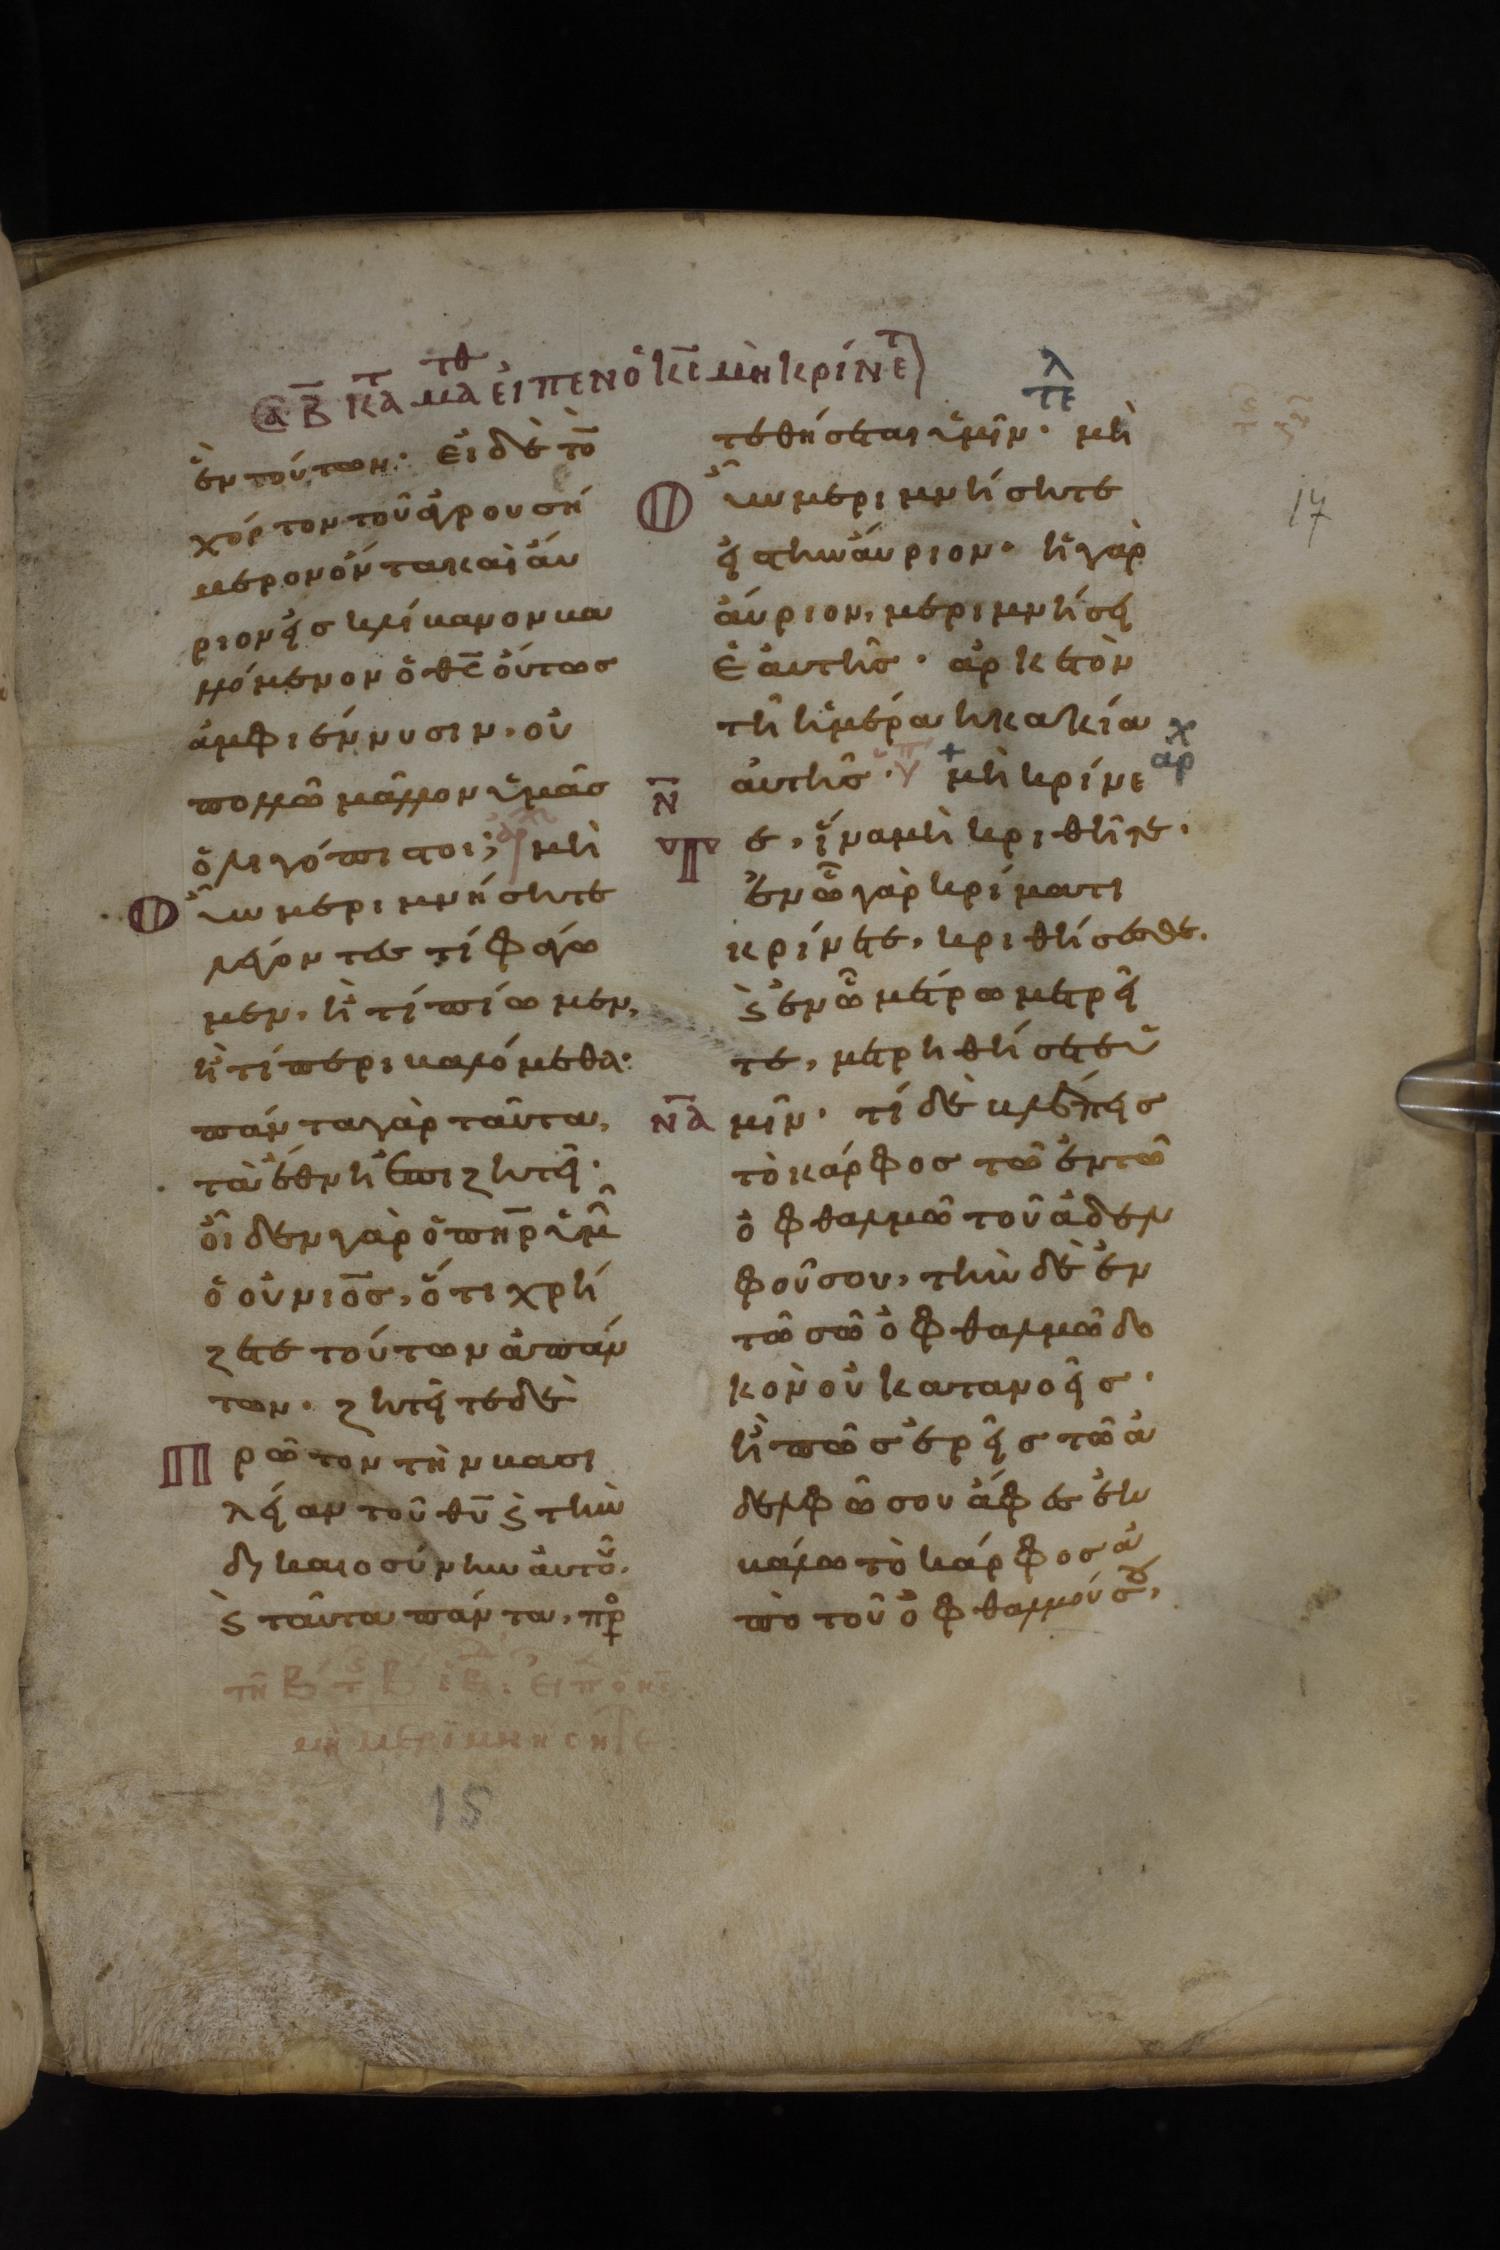 Σα Β Κτ ματθ εἶπεν ὁ κς μὴ κρίνετ
λ
τε
ἓν τούτων· εἰ δὲ το
χόρτον τοῦ ἀγροῦ σή
μερον ὄντα καὶ αὔ
ριον εἰς κλίβανον βα
λλόμενον ὁ θς οὕτως
ἀμφιέννυσιν, οὐ
πολλῶ μᾶλλον ὑμᾶς
ὀλιγόπιστοι; μὴ
οὖν μεριμνήσητε
λέγοντες τί φάγω
μεν, ἢ τί πίωμεν,
ἢ τί περιβαλόμεθα·
πάντα γὰρ ταῦτα,
τὰ ἔθνη ἐπιζητεῖ·
οἶδεν γὰρ ὁ πηρ ὑμ
ὁ οὐνιος, ὅτι χρή
ζετε τούτων ἁπάν
των· ζητεῖτε δὲ
Πρῶτον τὴν βασι
λείαν τοῦ θυ ϗ τὴν
δικαιοσύνην αὐτοῦ.
ϗ ταῦτα πάντα, πρ
τῆ Β τ Β εἶπ ὁ κς
μὴ μεριμνήσητε
15
τεθήσεται ὑμῖν· μὴ
Οὖν μεριμνήσητε
εἰς τὴν αὔριον· ἡ γὰρ
αὔριον, μεριμνήσει
ἑαυτῆς· ἀρκετὸν
τῆ ἡμέρα ἡ κακία
χ
αρ
αὐτῆς· + μὴ κρίνε
Ν
τε, ἵνα μὴ κριθῆτε·
ἐν ὧ γὰρ κρίματι
κρίνετε, κριθήσεσθε.
ϗ ἐν ὧ μέτρω μετρεῖ
τε, μετρηθήσεται ὑ
ΝΑ μῖν· τί δὲ βλέπεις
τὸ κάρφος τῶ ἐν τῶ
ὀφθαλμῶ τοῦ ἀδελ
φοῦ σου, τὴν δὲ ἐν
τῶ σῶ ὀφθαλμῶ δο
κὸν οὐ κατανοεῖς·
ἢ πῶς ἐρεῖς τῶ ἀ
δελφῶ σου ἄφες ἐκ
βάλω τὸ κάρφος ἀ
πὸ τοῦ ὀφθαλμοῦ σου,
17